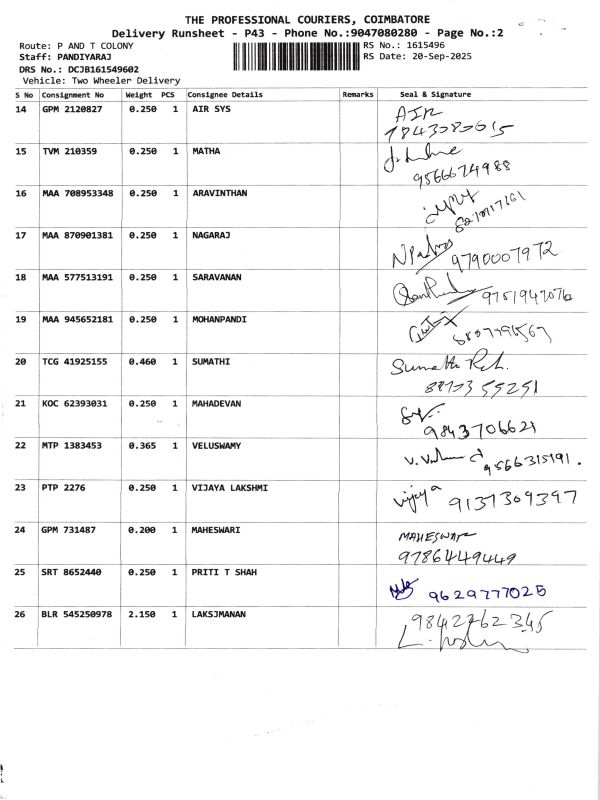 THE PROFESSIONAL COURIERS, COIMBATORE
Delivery Runsheet - P43 - Phone No.:9047080280 - Page No.:2
Route: P AND T COLONY RS No.: 1615496
Staff: PANDIYARAJ RS Date: 20-Sep-2025
DRS No.: DCJB161549602
Vehicle: Two Wheeler Delivery
S No Consignment No Weight PCS Consignee Details Remarks Seal & Signature
14 GPM 2120827 0.250 1 AIR SYS AIR
15 TVM 210359 0.250 1 MATHA
9566674988
16 MAA 708953348 0.250 1 ARAVINTHAN
17 MAA 870901381 0.250 1 NAGARAJ
9790007972
18 MAA 577513191 0.250 1 SARAVANAN
19 MAA 945652181 0.250 1 MOHANPANDI
20 TCG 41925155 0.460 1 SUMATHI Sumathi
21 KOC 62393031 0.250 1 MAHADEVAN
9843706621
22 MTP 1383453 0.365 1 VELUSWAMY
9566315191.
23 PTP 2276 0.250 1 VIJAYA LAKSHMI vijaya 9137309397
24 GPM 731487 0.200 1 MAHESWARI
9786449449
25 SRT 8652440 0.250 1 PRITI T SHAH
9629777025
26 BLR 545250978 2.150 1 LAKSJMANAN 9842762345